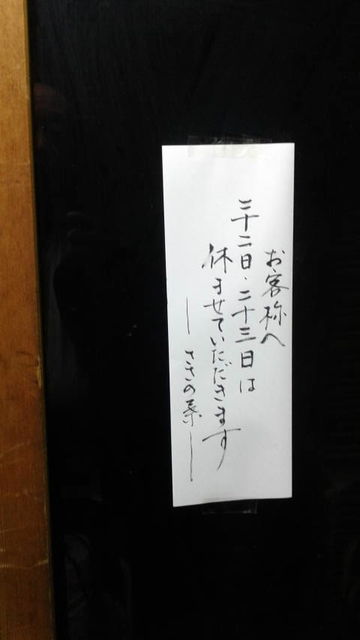 お客様へ
二十二日・二十三日は
休ませていただきます
ささの葉